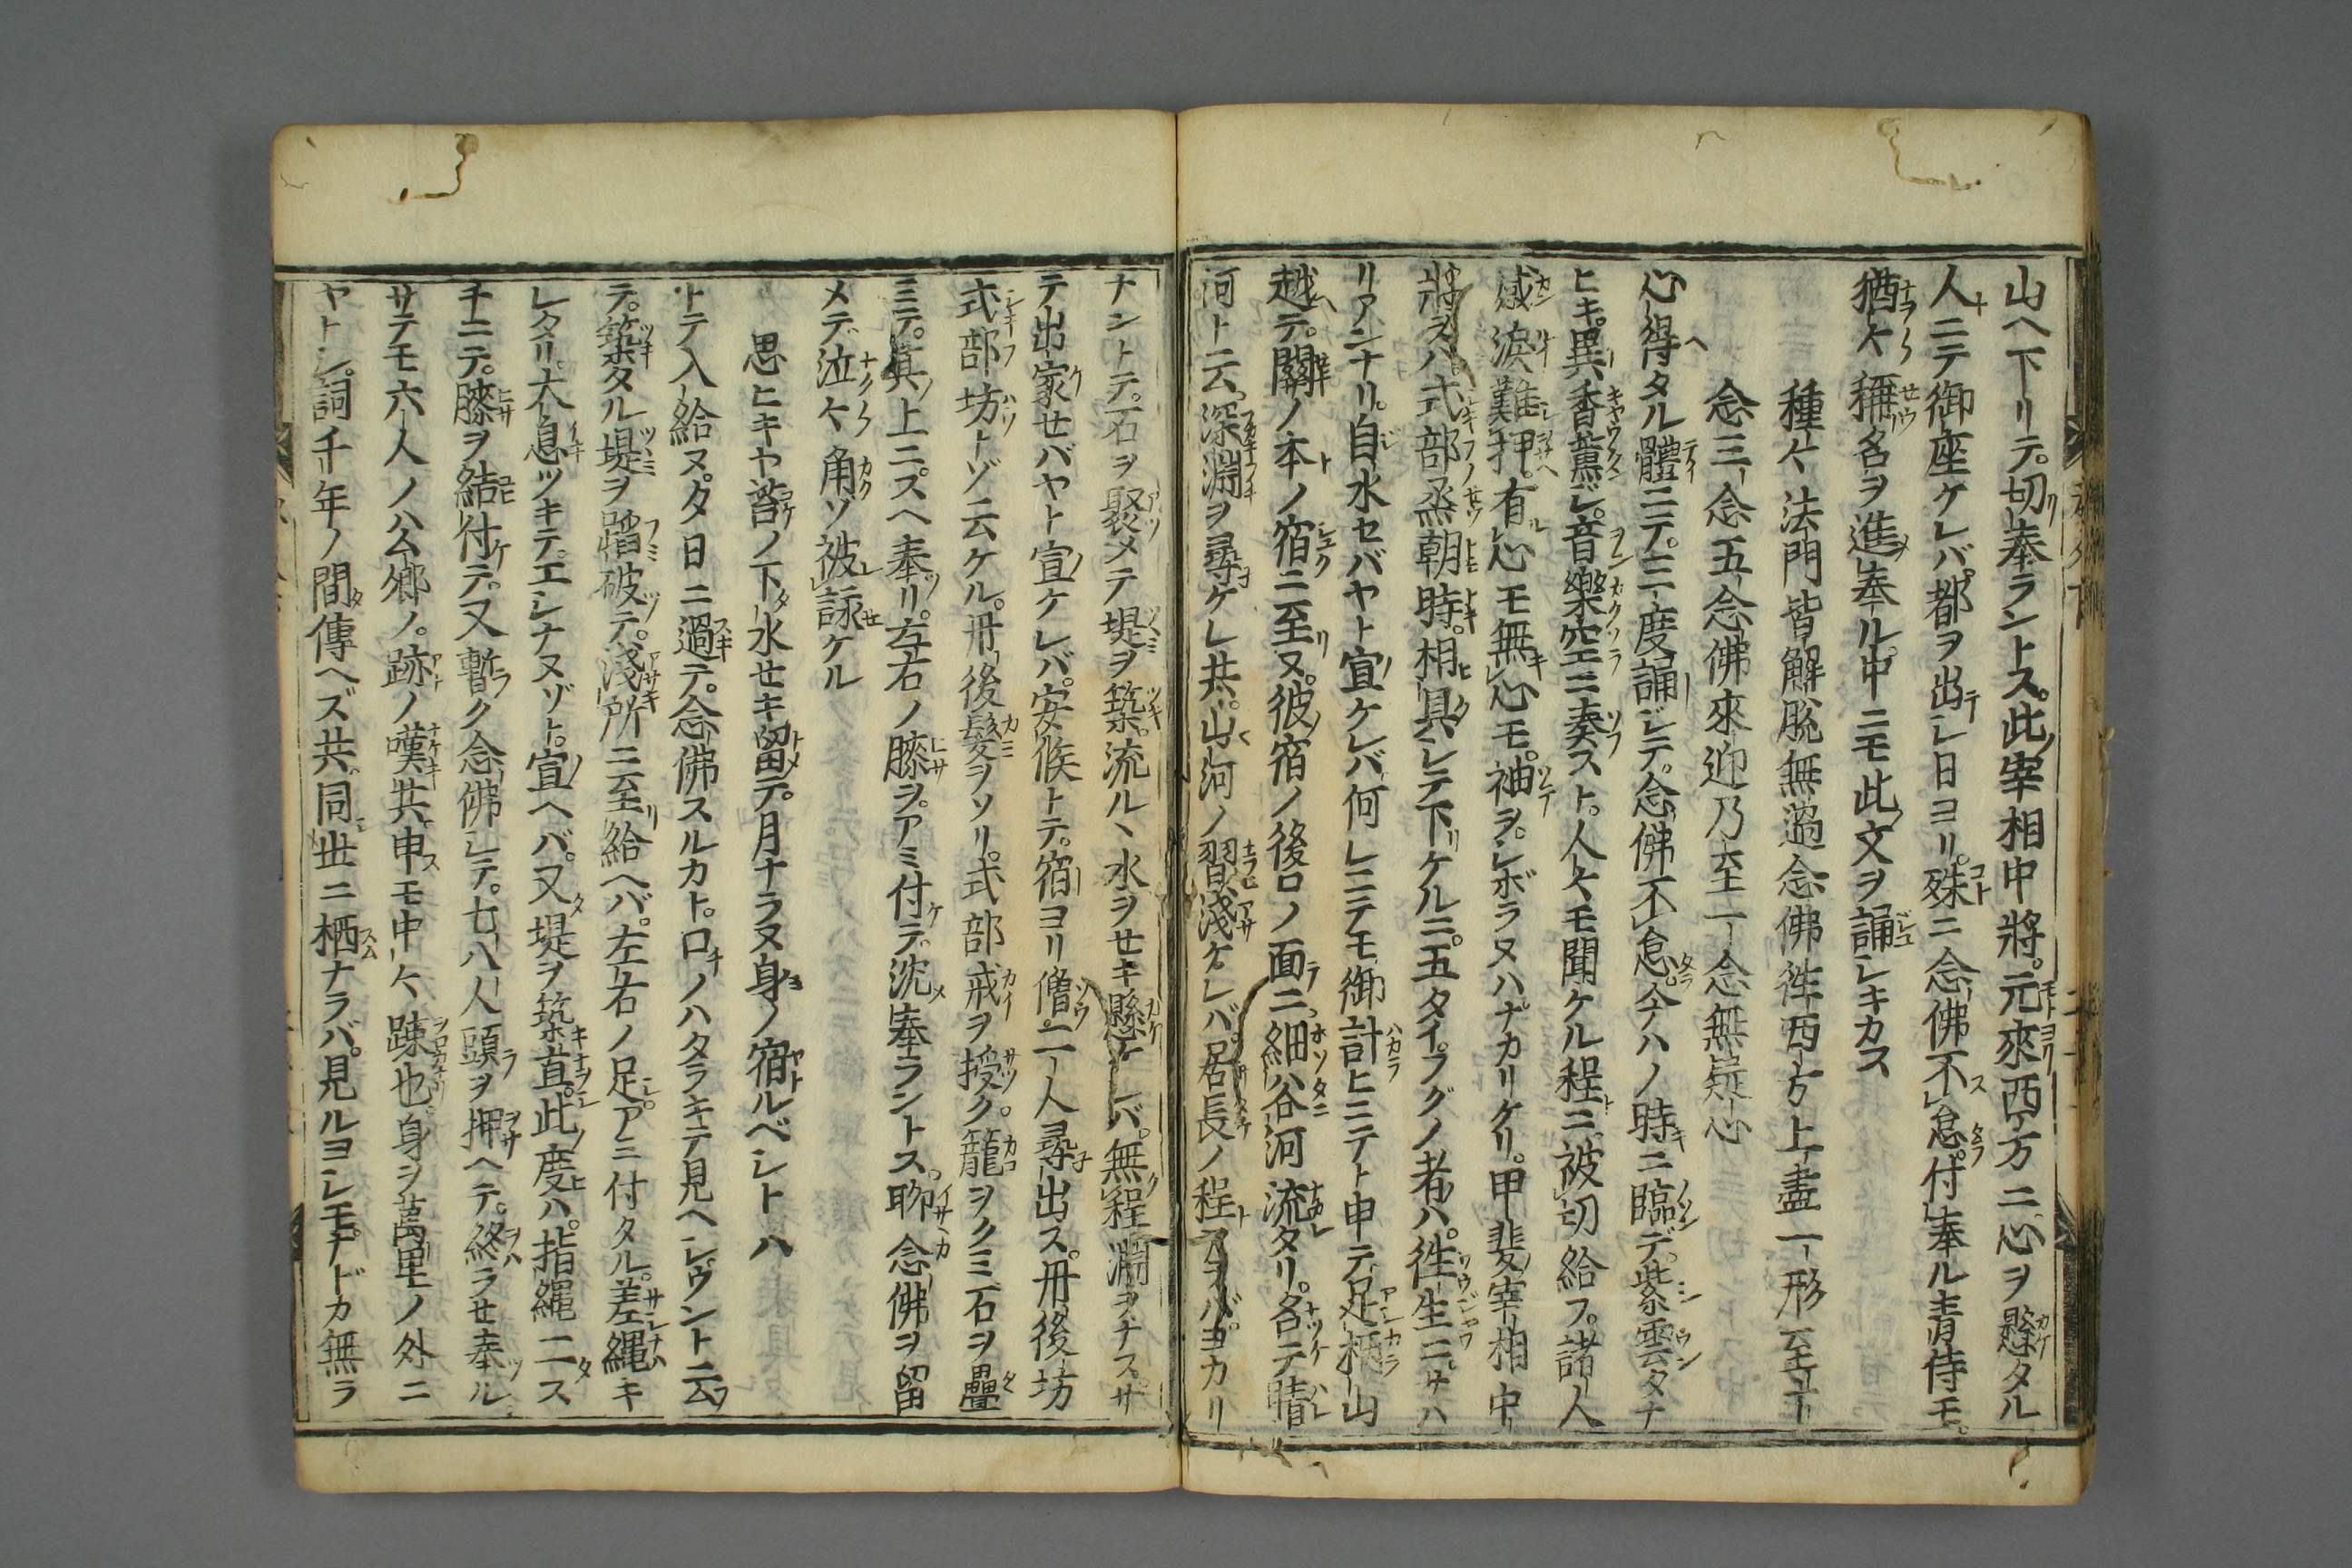 山ヘ下リテ。切奉ラントス。此宰相中將。元來西方ニ心ヲ懸タル
人ニテ御座ケレバ。都ヲ出シ日ヨリ。殊ニ念佛不怠。付奉ル青侍モ。
猶々稱名ヲ進奉ル。中ニモ此文ヲ誦シキカス
種々法門皆解脫無過念佛徃西方上盡一形至十
念三念五念佛來迎乃至一念無疑心
心得タル體ニテ。三度誦ジテ。念佛不怠。今ハノ時ニ臨デ。紫雲タナ
ヒキ。異香薰ジ。音樂空ニ奏スト。人々モ聞ケル程ニ。被切給フ。諸人
感淚難押。有心モ無心モ。袖ヲシボラヌハナカリケリ。甲斐宰相中
將ヲハ。式部烝朝時。相具シテ下リケルニ。五タイフグノ者ハ。徃生ニサハ
リアンナリ。自水セバヤト宣ケレバ。何レニテモ御計ヒニテト申テ。足柄山
越テ。關ノ本ノ宿ニ至ヌ。彼宿ノ後ロノ面ニ細谷河流タリ。名テ晴
河ト云。深淵ヲ尋ケレ共。山河ノ習淺ケレバ。居長ノ程
ナントテ。石ヲ聚メテ堤ヲ築。流ルヽ水ヲセキ懸ケレバ。無程淵ヲナス。サ
テ出家セバヤト宣ケレバ。安候トテ。宿ヨリ僧一人尋出ス。丹後坊
式部坊トゾ云ケル。丹後髮ヲソリ。式部戒ヲ授ク。籠ヲクミ石ヲ疊
ミテ。其上ニスヘ奉リ。左右ノ膝ヲアミ付テ。沈奉ラントス。聊念佛ヲ留
メテ泣々角ゾ被詠ケル
思ヒキヤ苔ノ下水セキ留テ。月ナラヌ身ノ宿ルベシトハ
トテ入給ヌ。タ日ニ過テ。念佛スルカト。口ノハタラキテ見ヘシヴント云
テ。築タル堤ヲ蹈破テ。淺所ニ至給ヘバ。左右ノ足ニアミ付タル。差繩キ
レタリ。大息ツキテ。エシナヌゾト。宣ヘバ。又堤ヲ築直。此度ハ。指繩二ス
チニテ。膝ヲ結付テ。又暫ク念佛シテ。七八人頭ヲ押ヘテ。終ラセ奉ル。
サテモ六人ノ公鄉ノ。跡ノ嘆共申モ中々疎也。身ヲ萬里ノ外ニ
ヤトシ。詞千年ノ間傳ヘズ共。同世ニ栖ナラバ。見ルヨシモナドカ無ラ